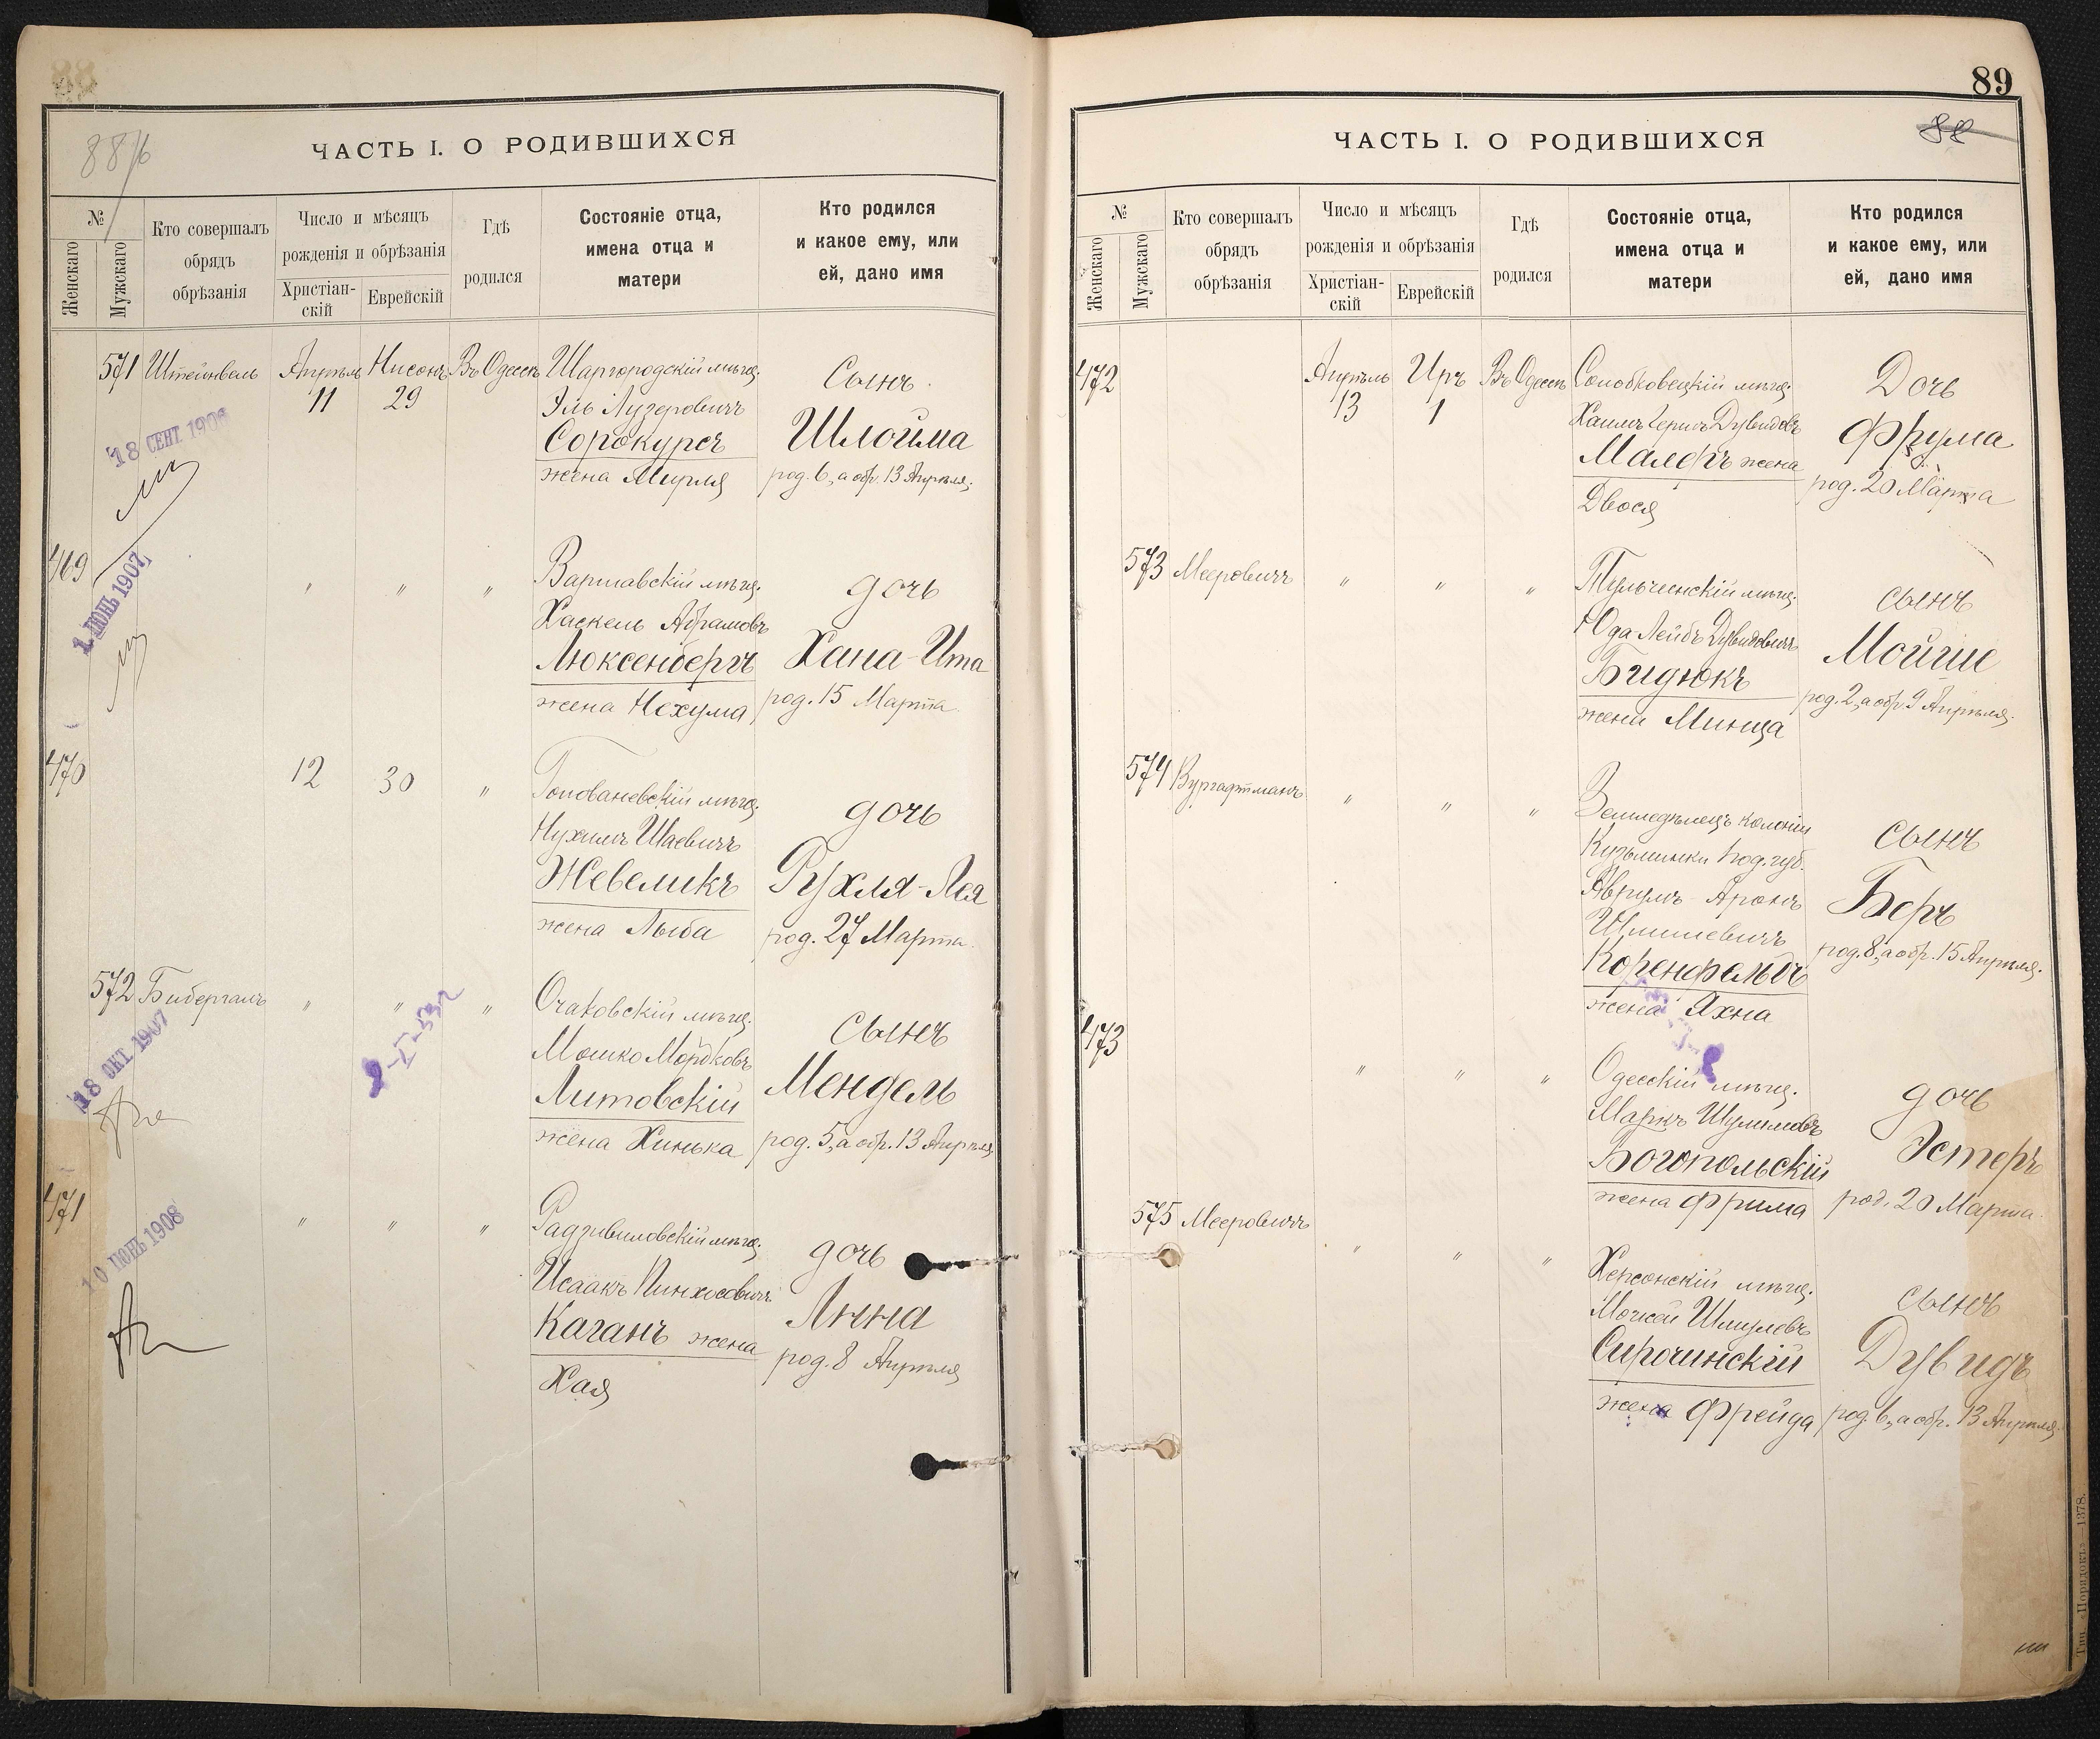 88
88/б
ЧАСТЬ I. О РОДИВШИХСЯ
№
Женскаго
Мужскаго
Кто совершалъ
обрядъ
обрѣзанія
Число и мѣсяцъ
рожденія и обрѣзанія
Христіан-
скій
Еврейскій
Гдѣ
родился
Состояніе отца,
имена отца и
матери
Кто родился
и какое ему, или
ей, дано имя
571 Штейнвель Апрѣль Нисонъ Въ Одессѣ Шаргородскій мѣщ. Сынъ
11 29 Эль Лузеровичъ
Сорокуреъ Шлойма
жена Мирля род. 6, а обр. 13 Апрѣля.
18 СЕНТ. 1906
469 " " " Варшавскій мѣщ. дочь
Хаскель Абрамовъ
Люксенбергъ Хана-Ита
жена Нехума род. 15 Марта
1 ІЮНЬ 1907
470 12 30 " Голованевскій мѣщ. дочь
Нухимъ Шаевичъ
Жевеликъ Рухля-Лея
жена Лыба род. 27 Марта
572 Бибергалъ " " " Очаковскій мѣщ. сынъ
Мошко Мордковъ
Литовскій Мендель
жена Хинька род. 5, а обр. 13 Апрѣля
18 ОКТ. 1907
471 " " " Радзивиловскій мѣщ. дочь
Исаакъ Пинхосовичъ
Каганъ жена Анна
Хая род. 8 Апрѣля
10 ІЮНЬ 1908
89
88
ЧАСТЬ I. О РОДИВШИХСЯ
№
Женскаго
Мужскаго
Кто совершалъ
обрядъ
обрѣзанія
Число и мѣсяцъ
рожденія и обрѣзанія
Христіан-
скій
Еврейскій
Гдѣ
родился
Состояніе отца,
имена отца и
матери
Кто родился
и какое ему, или
ей, дано имя
472 Апрѣль Иръ Въ Одессѣ Солобковецкій мѣщ. Дочь
13 1 Хаимъ Герцъ Дувидовъ
Малеръ жена Фрума
Двося род. 20 Марта
573 Мееровичъ " " " Тульчинскій мѣщ. сынъ
Юда Лейбъ Дувидовичъ
Бидюкъ Мойше
жена Минца род. 2, а обр. 9 Апрѣля.
574 Вургафтманъ " " " Земледѣлецъ колоніи сынъ
Кузьминки Под. губ.
Аврумъ-Аронъ Беръ
Шлиіевичъ род. 8, а обр. 15 Апрѣля.
Коренфельдъ
жена Яхна
473 " " " Одесскій мѣщ. дочь
Маркъ Шулимовъ
Богопольскій Эстеръ
жена Фрима род. 20 Марта
575 Мееровичъ " " " Херсонскій мѣщ. сынъ
Мойсей Шмулевъ
Сирочинскій Дувидъ
жена Фрейда род. 6, а обр. 13 Апрѣля
Тип. «Порядокъ»—1378.